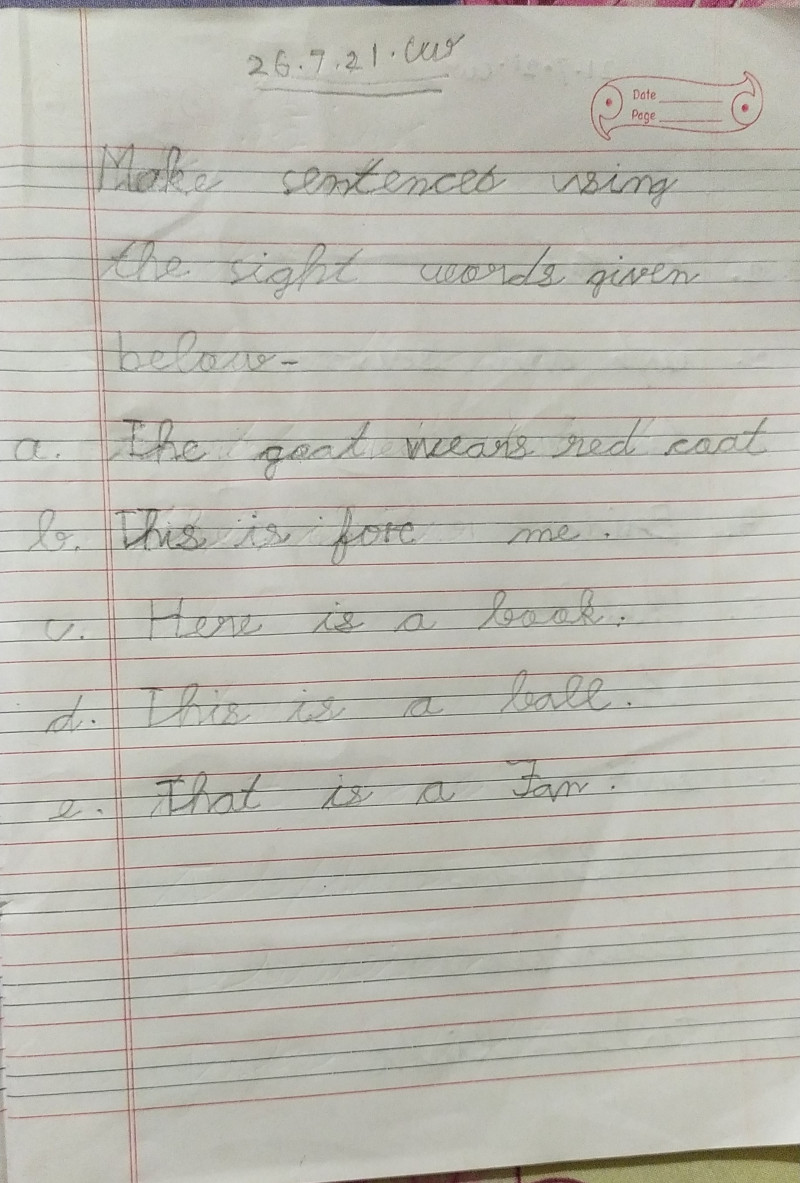 26.7.21. CW
Date
Page
Make sentences using
the sight words given
below-
a. The goat wears red coat
b. This is for me.
c. Here is a book.
d. This is a ball.
e. That is a Fan.